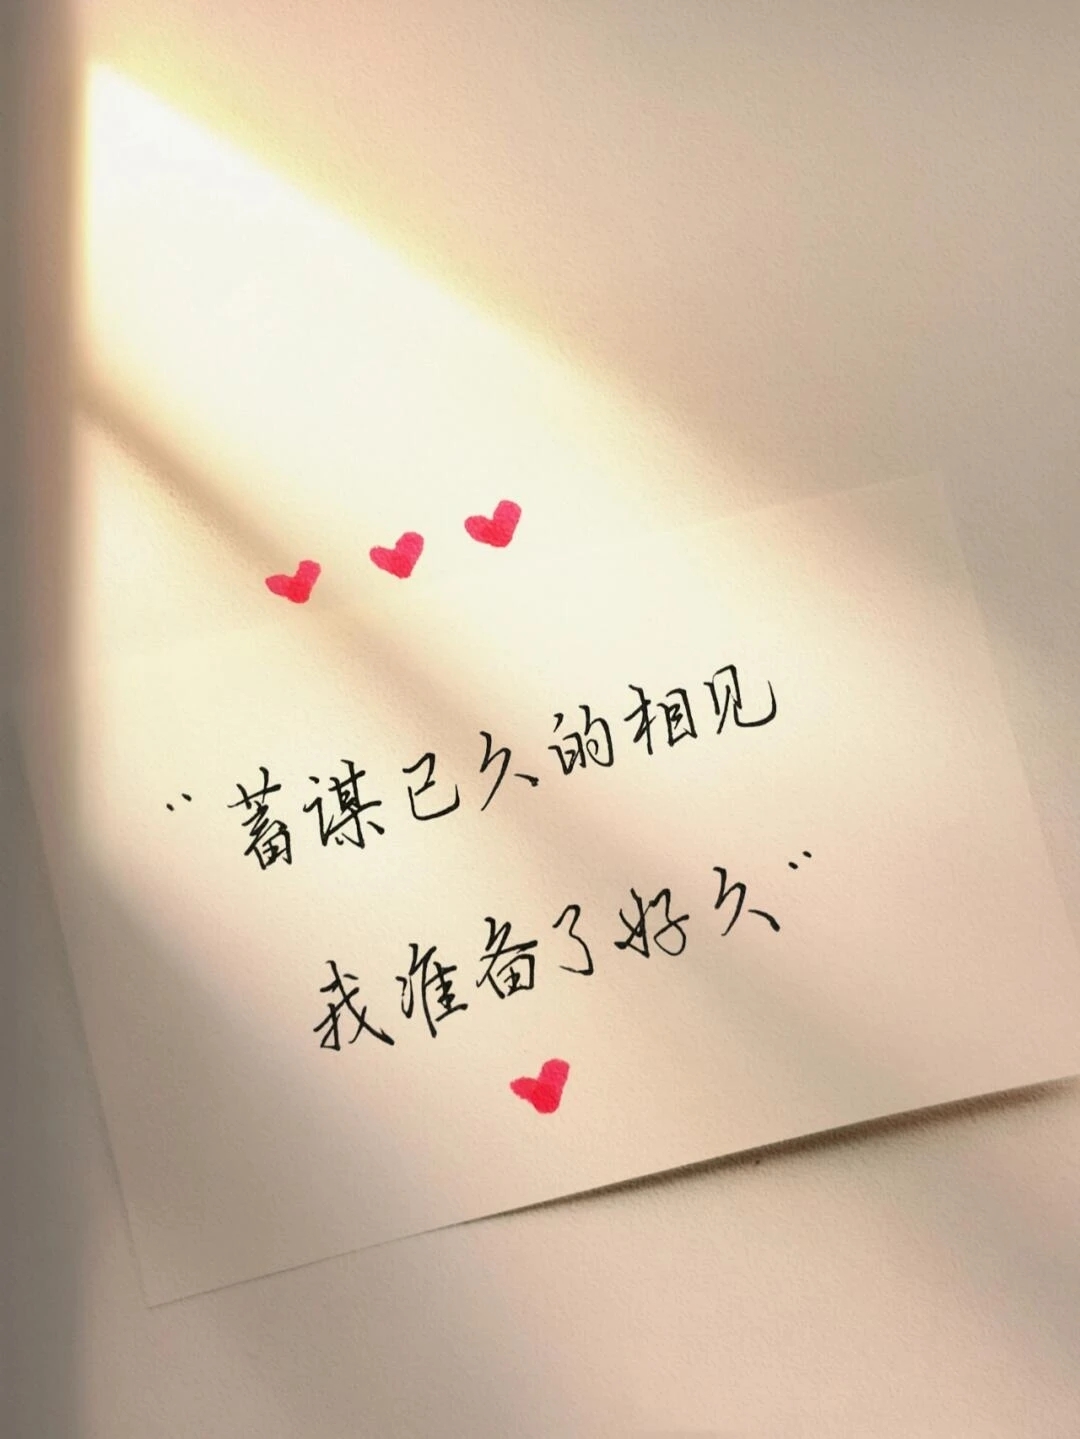 "蓄谋已久的相见
我准备了好久"